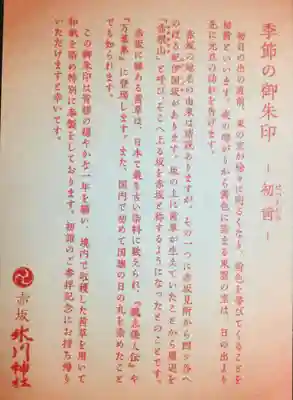 季節の御朱印 ー初茜ー
初日の出の直前、東の空が徐々に明るくなり、茜色を帯びてくることを
初茜といいます。夜の暗がりから茜色に染まる東雲の空は、日の出より
先に元旦の訪れを告げます。
赤坂の地名の由来は諸説ありますが、その一つに赤坂見附から四ッ谷へ
のぼる紀伊国坂があります。坂の上に茜草が生えていたことから周辺を
「茜根山」と呼び、そこへ上る坂を赤坂と称するようになったとのことです。
赤坂に縁ある茜草は、日本で最も古い染料に数えられ、『魏志倭人伝』や
『万葉集』に登場します。また、国内で初めて国旗の日の丸を染めたこと
でも知られます。
この御朱印は皆様の穏やかな一年を願い、境内で収穫した茜草を用いて
和紙を染め特別に奉製をしております。初詣のご参拝記念にお持ち帰り
いただけますと幸いです。
赤坂 氷川神社